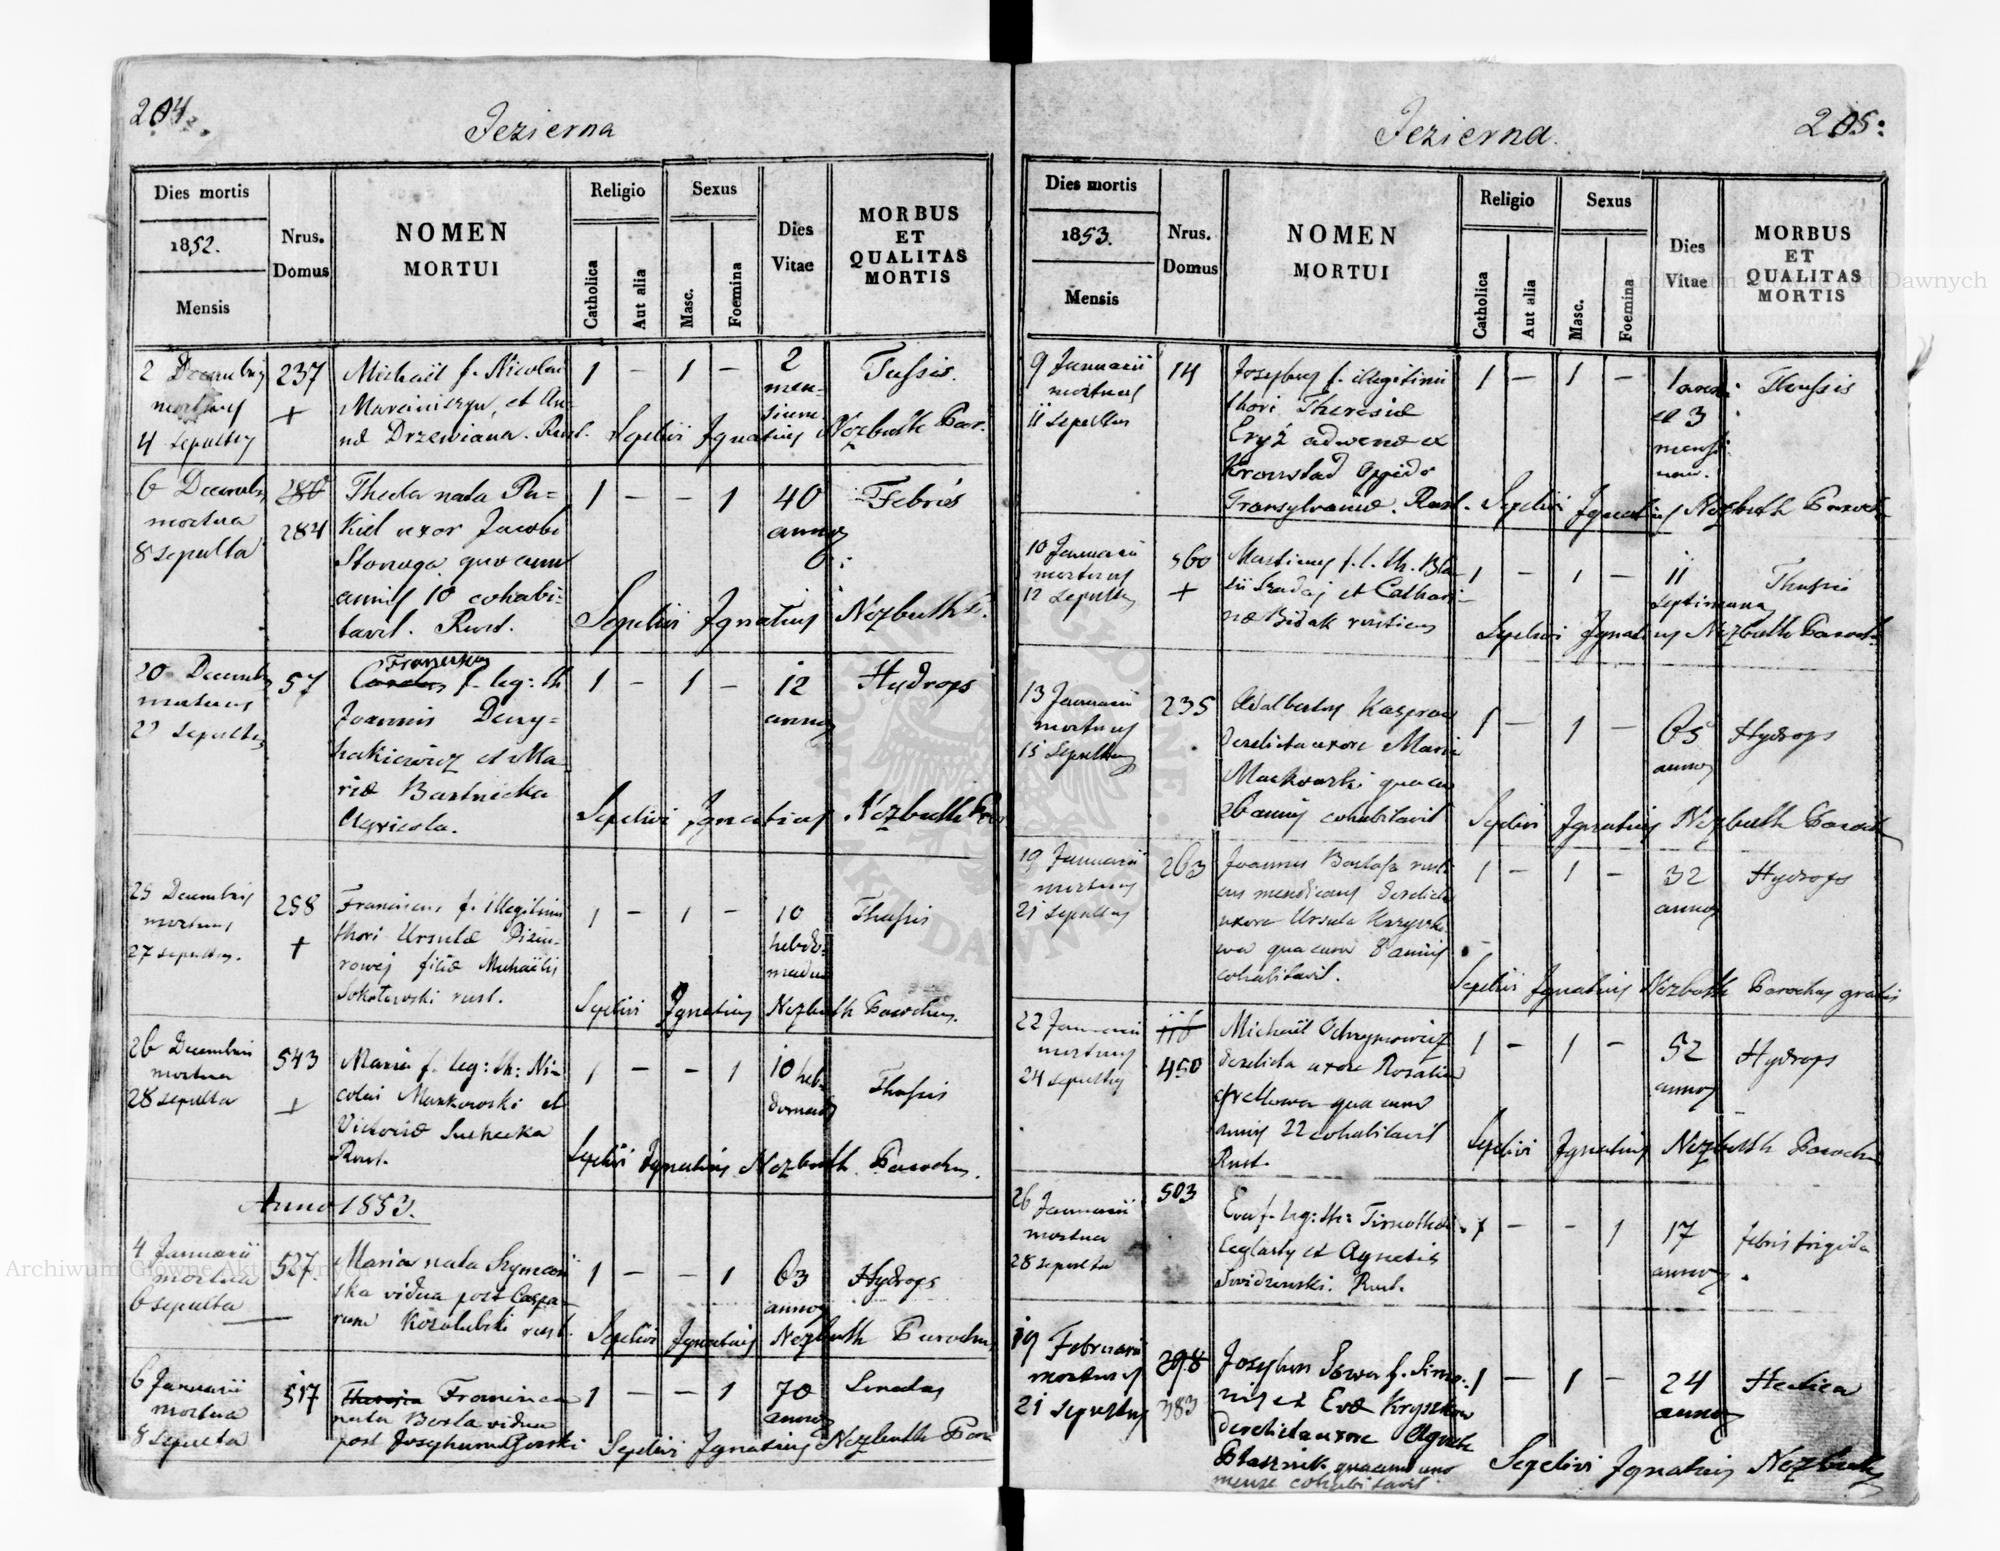 204.
Jezierna
Dies mortis
1852.
Mensis
Nrus.
Domus
NOMEN
MORTUI
Religio
Catholica
Aut alia
Sexus
Masc.
Foemina
Dies
Vitae
MORBUS
ET
QUALITAS
MORTIS
2 Decembris
mortuus
4 sepultus
237
+
Michaël f. Nicolai
Marciniszyn, et An=
næ Drzewiana. Rust.
1 – 1 –
2
men=
Tussis.
Sepelivi Ignatius Nezbuth Par.
6 Decembris
mortua
8 sepulta
280
284
Thecla nata Pa=
kiel uxor Jacobi
quacum
annis 10 cohabi=
tavit. Rust.
1 – – 1
40
annos
Febris
Sepelivi Ignatius Nezbuth P.
20 Decembris
mortuus
sepultus
57
Franciscus
f. leg: th
Joannis
et Ma
riæ Bartnicka
Agricola.
1 – 1 –
12
annos
Hydrops
Sepelivi Ignatius Nezbuth Par
25 Decembris
mortuus
27 sepultus.
258
+
Franciscus f. illegitimi
thori Ursulæ
filiæ Michaëlis
Sokołowski rust.
1 – 1 –
10
hebdo=
madas
Thussis
Sepelivi Ignatius Nezbuth Parochus.
26 Decembris
mortua
28 sepulta
543
+
Maria f. leg: th: Ni=
colai Markowski et
Victoriæ Suchecka
Rust.
1 – – 1
10 heb
domad
Thussis
Sepelivi Ignatius Nezbuth Parochus.
Anno 1853.
4 Januarii
mortua
6 sepulta
527.
Maria nata Szyman
ska vidua post Caspa=
rum Kozolubski rust.
1 – – 1
63
annos
Hydrops
Sepelivi Ignatius Nezbuth Parochus
6 Januarii
mortua
8 sepulta
517
nata vidua
post Josephum Gorski
1 – – 1
70
annos
Sepelivi Ignatius Nezbuth Paro
Jezierna.
205:
Dies mortis
1853.
Mensis
Nrus.
Domus
NOMEN
MORTUI
Religio
Catholica
Aut alia
Sexus
Masc.
Foemina
Dies
Vitae
MORBUS
ET
QUALITAS
MORTIS
9 Januarii
mortuus
11 sepultus
14
Josephus f. illegitimi
thori Theresiæ
advenæ ex
Kronstad Oppido
Transylvaniæ. Rust.
1 – 1 –
et 3
Thussis
Sepelivi Ignatius Nezbuth Paroch
10 Januarii
mortuus
12 sepultus
560
+
Martinus f. l. th. Bla
sii et Cathari
næ Bidak rusticus
1 – 1 –
11
septimana
Thussis
Sepelivi Ignatius Nezbuth Paroch
13 Januarii
mortuus
15 sepultus
235
Adalbertus Kasprow
derelicta uxore Maria
Markowski quacum
26 annis cohabitavit
1 – 1 –
65
annos
Hydrops
Sepelivi Ignatius Nezbuth Paroch
19 Januarii
mortuus
21 sepultus
263
Joannes rusti
cus mendicans derelicta
uxore Ursula
quacum 8 annis
cohabitavit.
1 – 1 –
32
annos
Hydrops
Sepelivi Ignatius Nezbuth Parochus gratis
22 Januarii
mortuus
24 sepultus
116
450
Michaël Ochrymowicz
derelicta uxore Rosalia
quacum
annis 22 cohabitavit
Rust.
1 – 1 –
52
annos
Hydrops
Sepelivi Ignatius Nezbuth Paroch
26 Januarii
mortua
28 sepulta
503
Eva f. leg: th: Timothei
Ceglarty et Agnetis
Swidzenski. Rust.
1 – – 1
17
annos
febris frigida
19 Februarii
mortuus
21 sepultus
298
383
Josephus Sowa f. Simo=
nis et Evæ Kryszkow
derelicta uxore
quacum uno
mense cohabitavit.
1 – 1 –
24
annos
Hectica
Sepelivi Ignatius Nezbuth
Archiwum Główne Akt Dawnych
Archiwum Główne Akt Dawnych
ARCHIWUM GŁÓWNE AKT DAWNYCH